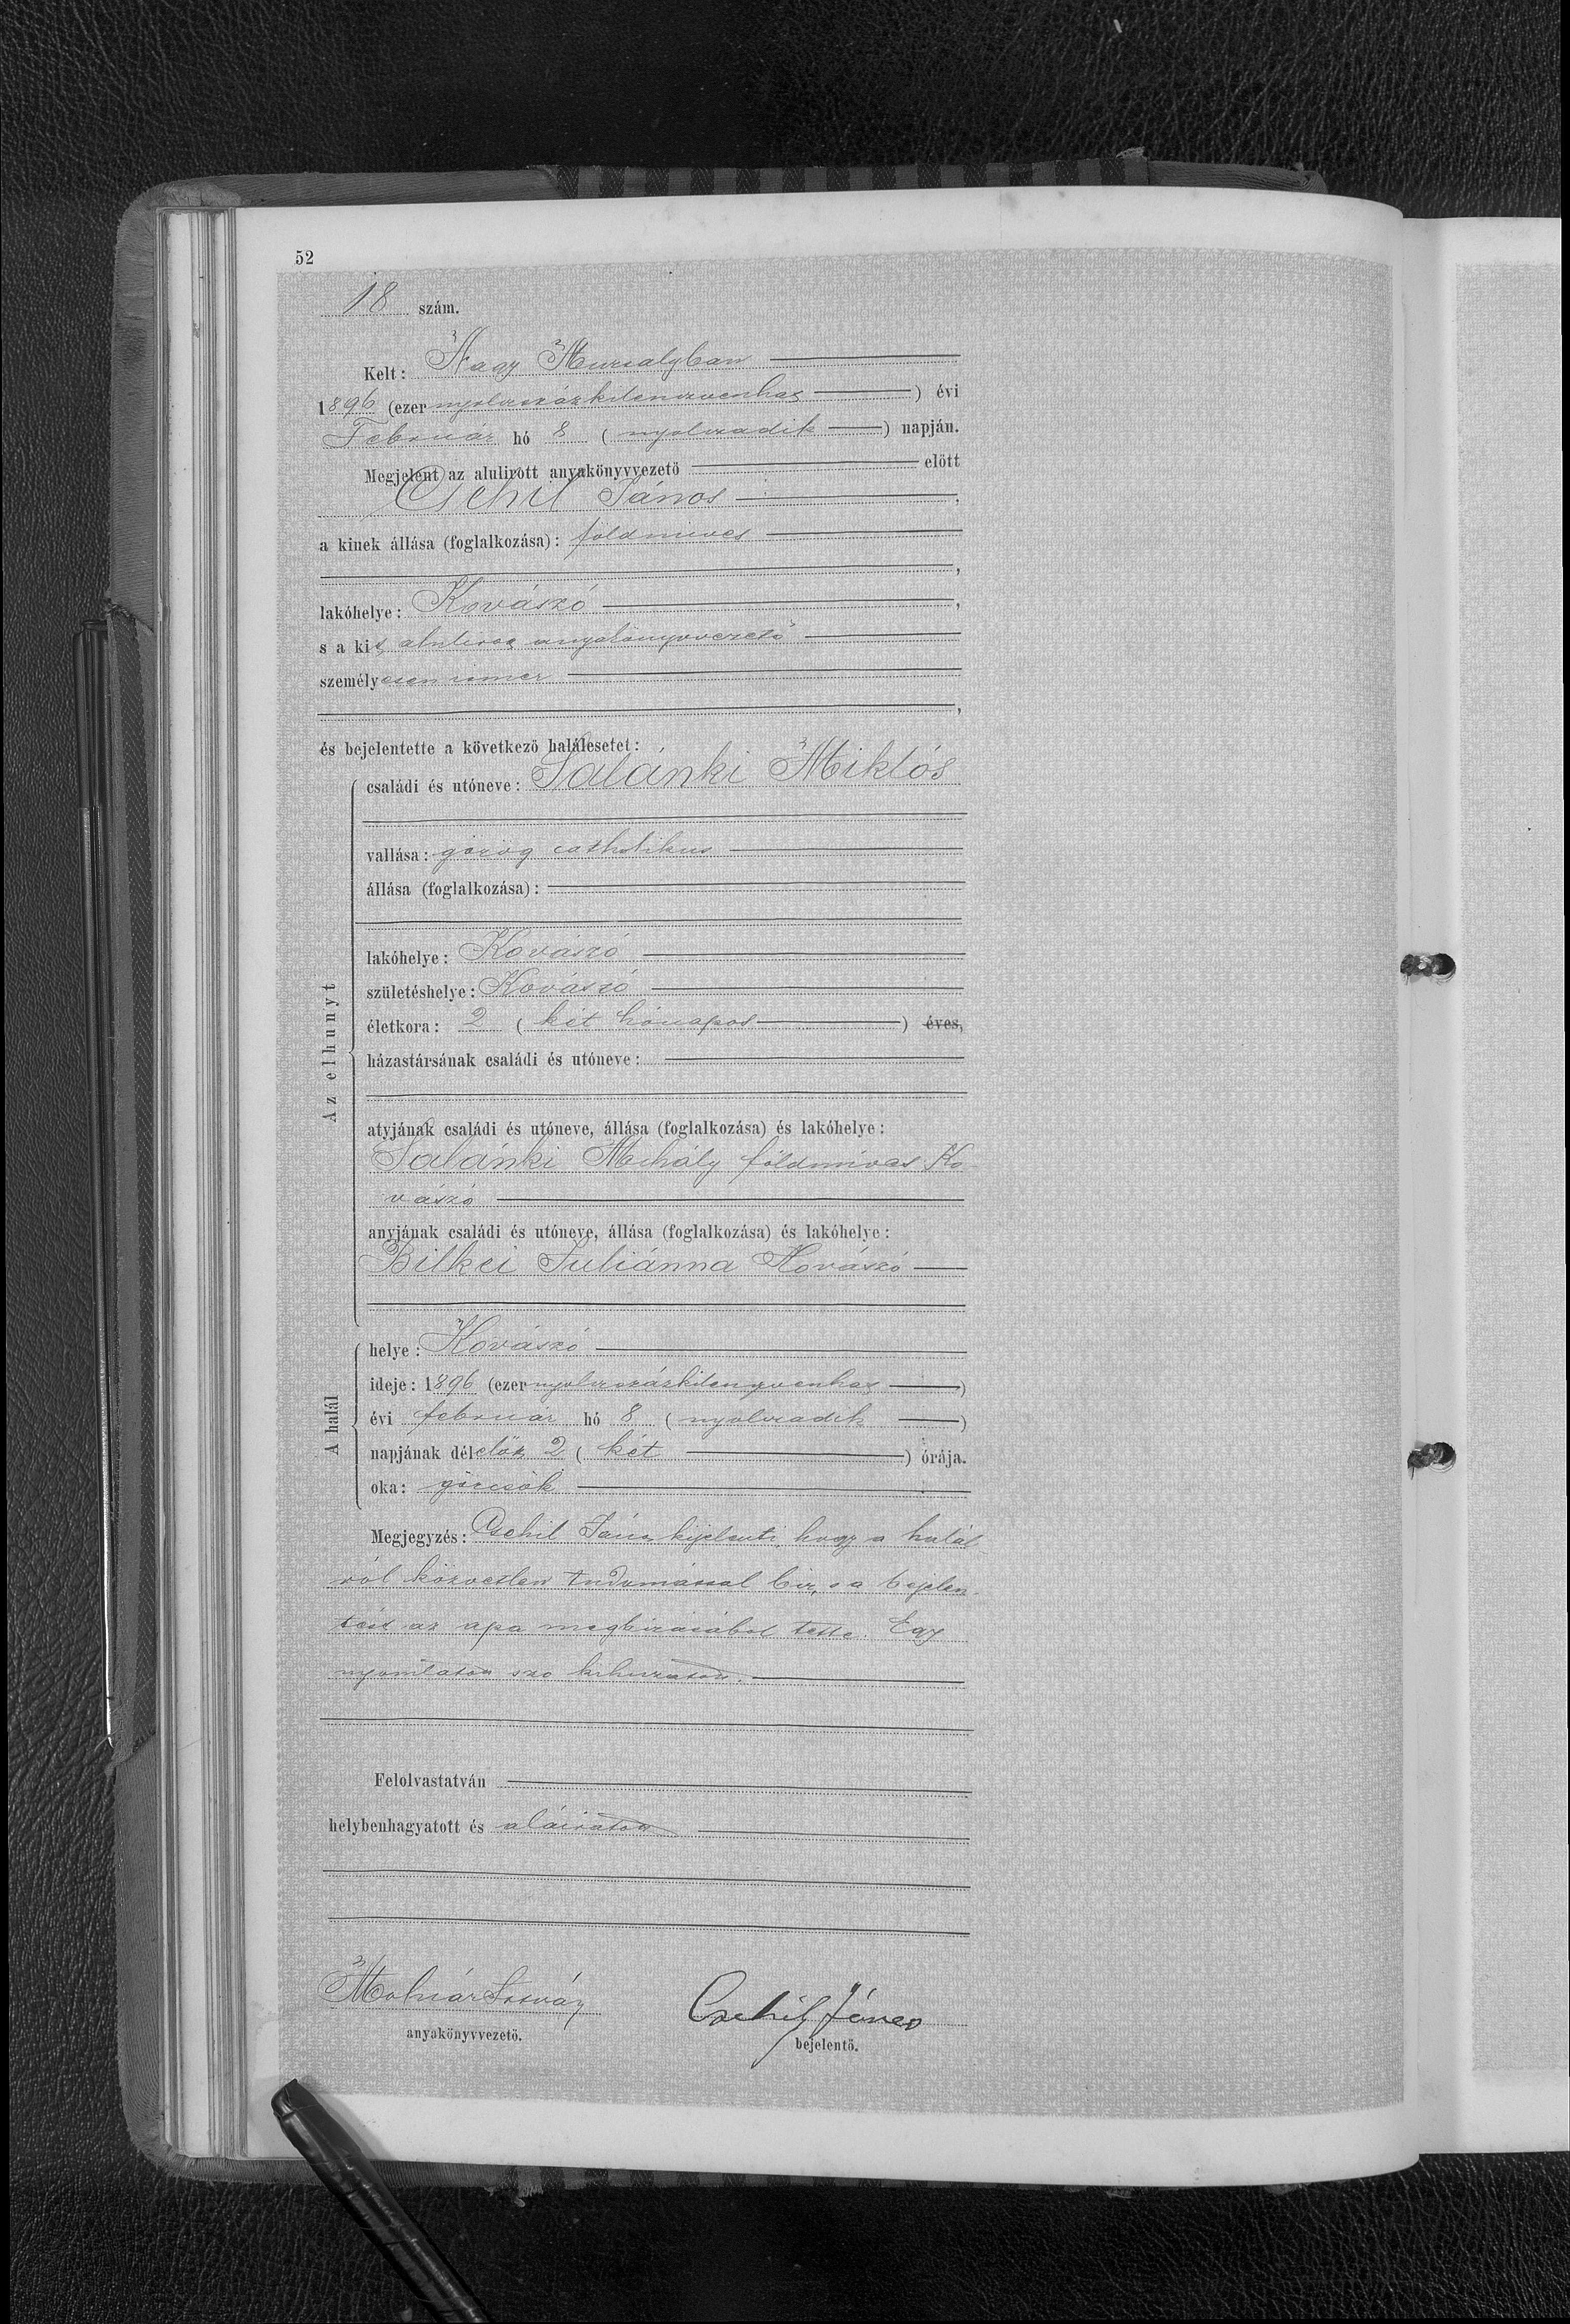 52
18 szám.
Kelt: Nagy Muzsalyban
1896 (ezernyolczszázkilenczvenhat) évi
Február hó 8 (nyolczadik) napján.
Megjelent az alulirott anyakönyvvezető előtt
Csehil János,
a kinek állása (foglalkozása): földmives
,
lakóhelye: Kovászó,
s a kit alulirott anyakönyvvezető
személyesen ismer
,
és bejelentette a következő halálesetet:
Az elhunyt
családi és utóneve: Salánki Miklós
vallása: görög catholikus
állása (foglalkozása):
lakóhelye: Kovászó
születéshelye: Kovászó
életkora: 2 (két hónapos) éves,
házastársának családi és utóneve:
atyjának családi és utóneve, állása (foglalkozása) és lakóhelye:
Salánki Mihály földmives Ko-
vászó
anyjának családi és utóneve, állása (foglalkozása) és lakóhelye:
Bilkei Juliánna Kovászó
A halál
helye: Kovászó
ideje: 1896 (ezernyolczszázkilenczvenhat)
évi február hó 8 (nyolczadik)
napjának délelőtt 2 (két) órája.
oka: görcsök
Megjegyzés: Csehil János kijelenti, hogy a halál-
ról közvetlen tudomással bir, s a bejelen-
tést az apa megbizásából tette. Egy
nyomtatott szó kihuzatott.
Felolvastatván
helybenhagyatott és aláiratott
Molnár István Csehil János
anyakönyvvezető. bejelentő.